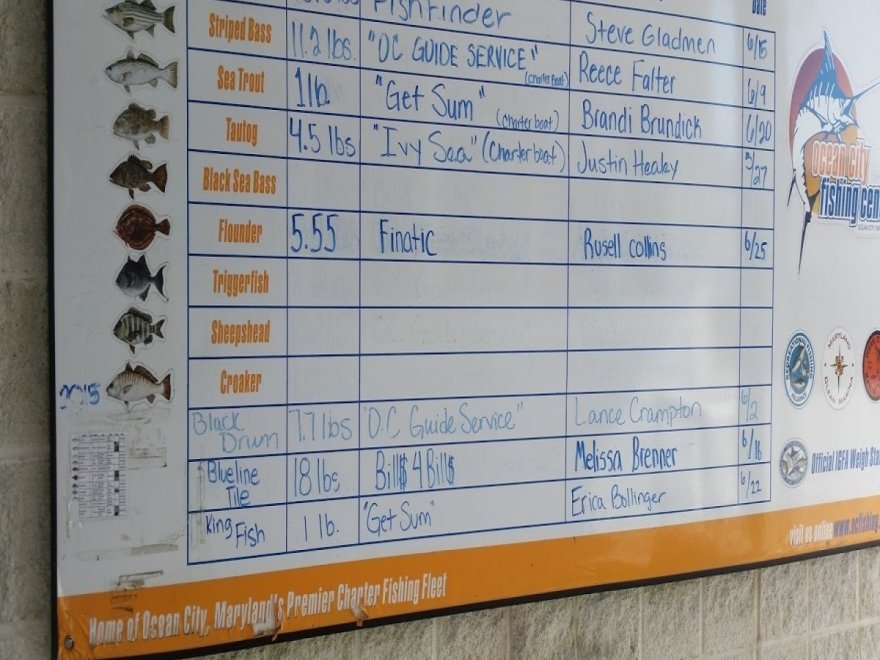 Fishfinder Date
Striped Bass 11.2 lbs. "OC GUIDE SERVICE" (charter boat) Steve Gladmen 6/15
Sea Trout 1 lb. "Get Sum" (charter boat) Reece Falter 6/9
Tautog 4.5 lbs "Ivy Sea" (Charterboat) Brandi Brundick 6/20
Black Sea Bass Justin Healey 5/27
Flounder 5.55 Finatic Rusell collins 6/25
Triggerfish
Sheepshead
Croaker
2015
Black Drum 7.7 lbs "O.C Guide Service" Lance Crampton 6/2
Blueline Tile 18 lbs Bill$ 4 Bill$ Melissa Brenner 6/16
King Fish 1 lb. "Get Sum" Erica Bollinger 6/22
Ocean City
fishing cen
MARYLAND
Official IGFA Weigh Sta
visit us online www.ocfishing.
Home of Ocean City, Maryland's Premier Charter Fishing Fleet